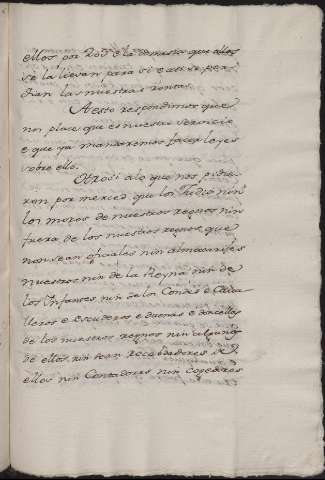 ellos por Rod e la demasia que ellos
se la llevan para si e asi se per
dian las nuestras rentas.
A esto respondimos que
nos place que es nuestro servicio
e que ya mandaremos facer leyes
sobre ello.
Otrosi a lo que nos pidie
ron por merced que los Judios nin
los moros de nuestros regnos nin
fuera de los nuestros regnos que
non sean oficiales nin almoxarifes
nuestros nin de la Reyna nin de
los Infantes nin de los Condes e Cava
lleros e Escuderos e dueñas e doncellas
de los nuestros regnos nin algunos
de ellos nin sean recabdadores de
ellos nin Contadores nin cogedores